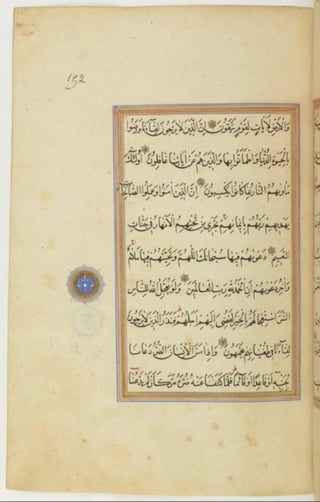 وَالْاَرْضِ لَاٰيَاتٍ لِقَوْمٍ يَتَّقُونَ اِنَّ الَّذِينَ لَا يَرْجُونَ لِقَآءَنَا وَرَضُوا
بِالْحَيٰوةِ الدُّنْيَا وَاطْمَاَنُّوا بِهَا وَالَّذِينَ هُمْ عَنْ اٰيَاتِنَا غَافِلُونَ اُولٰٓئِكَ
مَاْوٰيهُمُ النَّارُ بِمَا كَانُوا يَكْسِبُونَ اِنَّ الَّذِينَ اٰمَنُوا وَعَمِلُوا الصَّالِحَاتِ
يَهْدِيهِمْ رَبُّهُمْ بِاِيمَانِهِمْ تَجْرِى مِنْ تَحْتِهِمُ الْاَنْهَارُ فِى جَنَّاتِ
النَّعِيمِ دَعْوٰيهُمْ فِيهَا سُبْحَانَكَ اللّٰهُمَّ وَتَحِيَّتُهُمْ فِيهَا سَلَامٌ
وَاٰخِرُ دَعْوٰيهُمْ اَنِ الْحَمْدُ لِلّٰهِ رَبِّ الْعَالَمِينَ وَلَوْ يُعَجِّلُ اللّٰهُ لِلنَّاسِ
الشَّرَّ اسْتِعْجَالَهُمْ بِالْخَيْرِ لَقُضِىَ اِلَيْهِمْ اَجَلُهُمْ فَنَذَرُ الَّذِينَ لَا يَرْجُونَ
لِقَآءَنَا فِى طُغْيَانِهِمْ يَعْمَهُونَ وَاِذَا مَسَّ الْاِنْسَانَ الضُّرُّ دَعَانَا
لِجَنْبِهِ اَوْ قَاعِدًا اَوْ قَآئِمًا فَلَمَّا كَشَفْنَا عَنْهُ ضُرَّهُ مَرَّ كَاَنْ لَمْ يَدْعُنَا